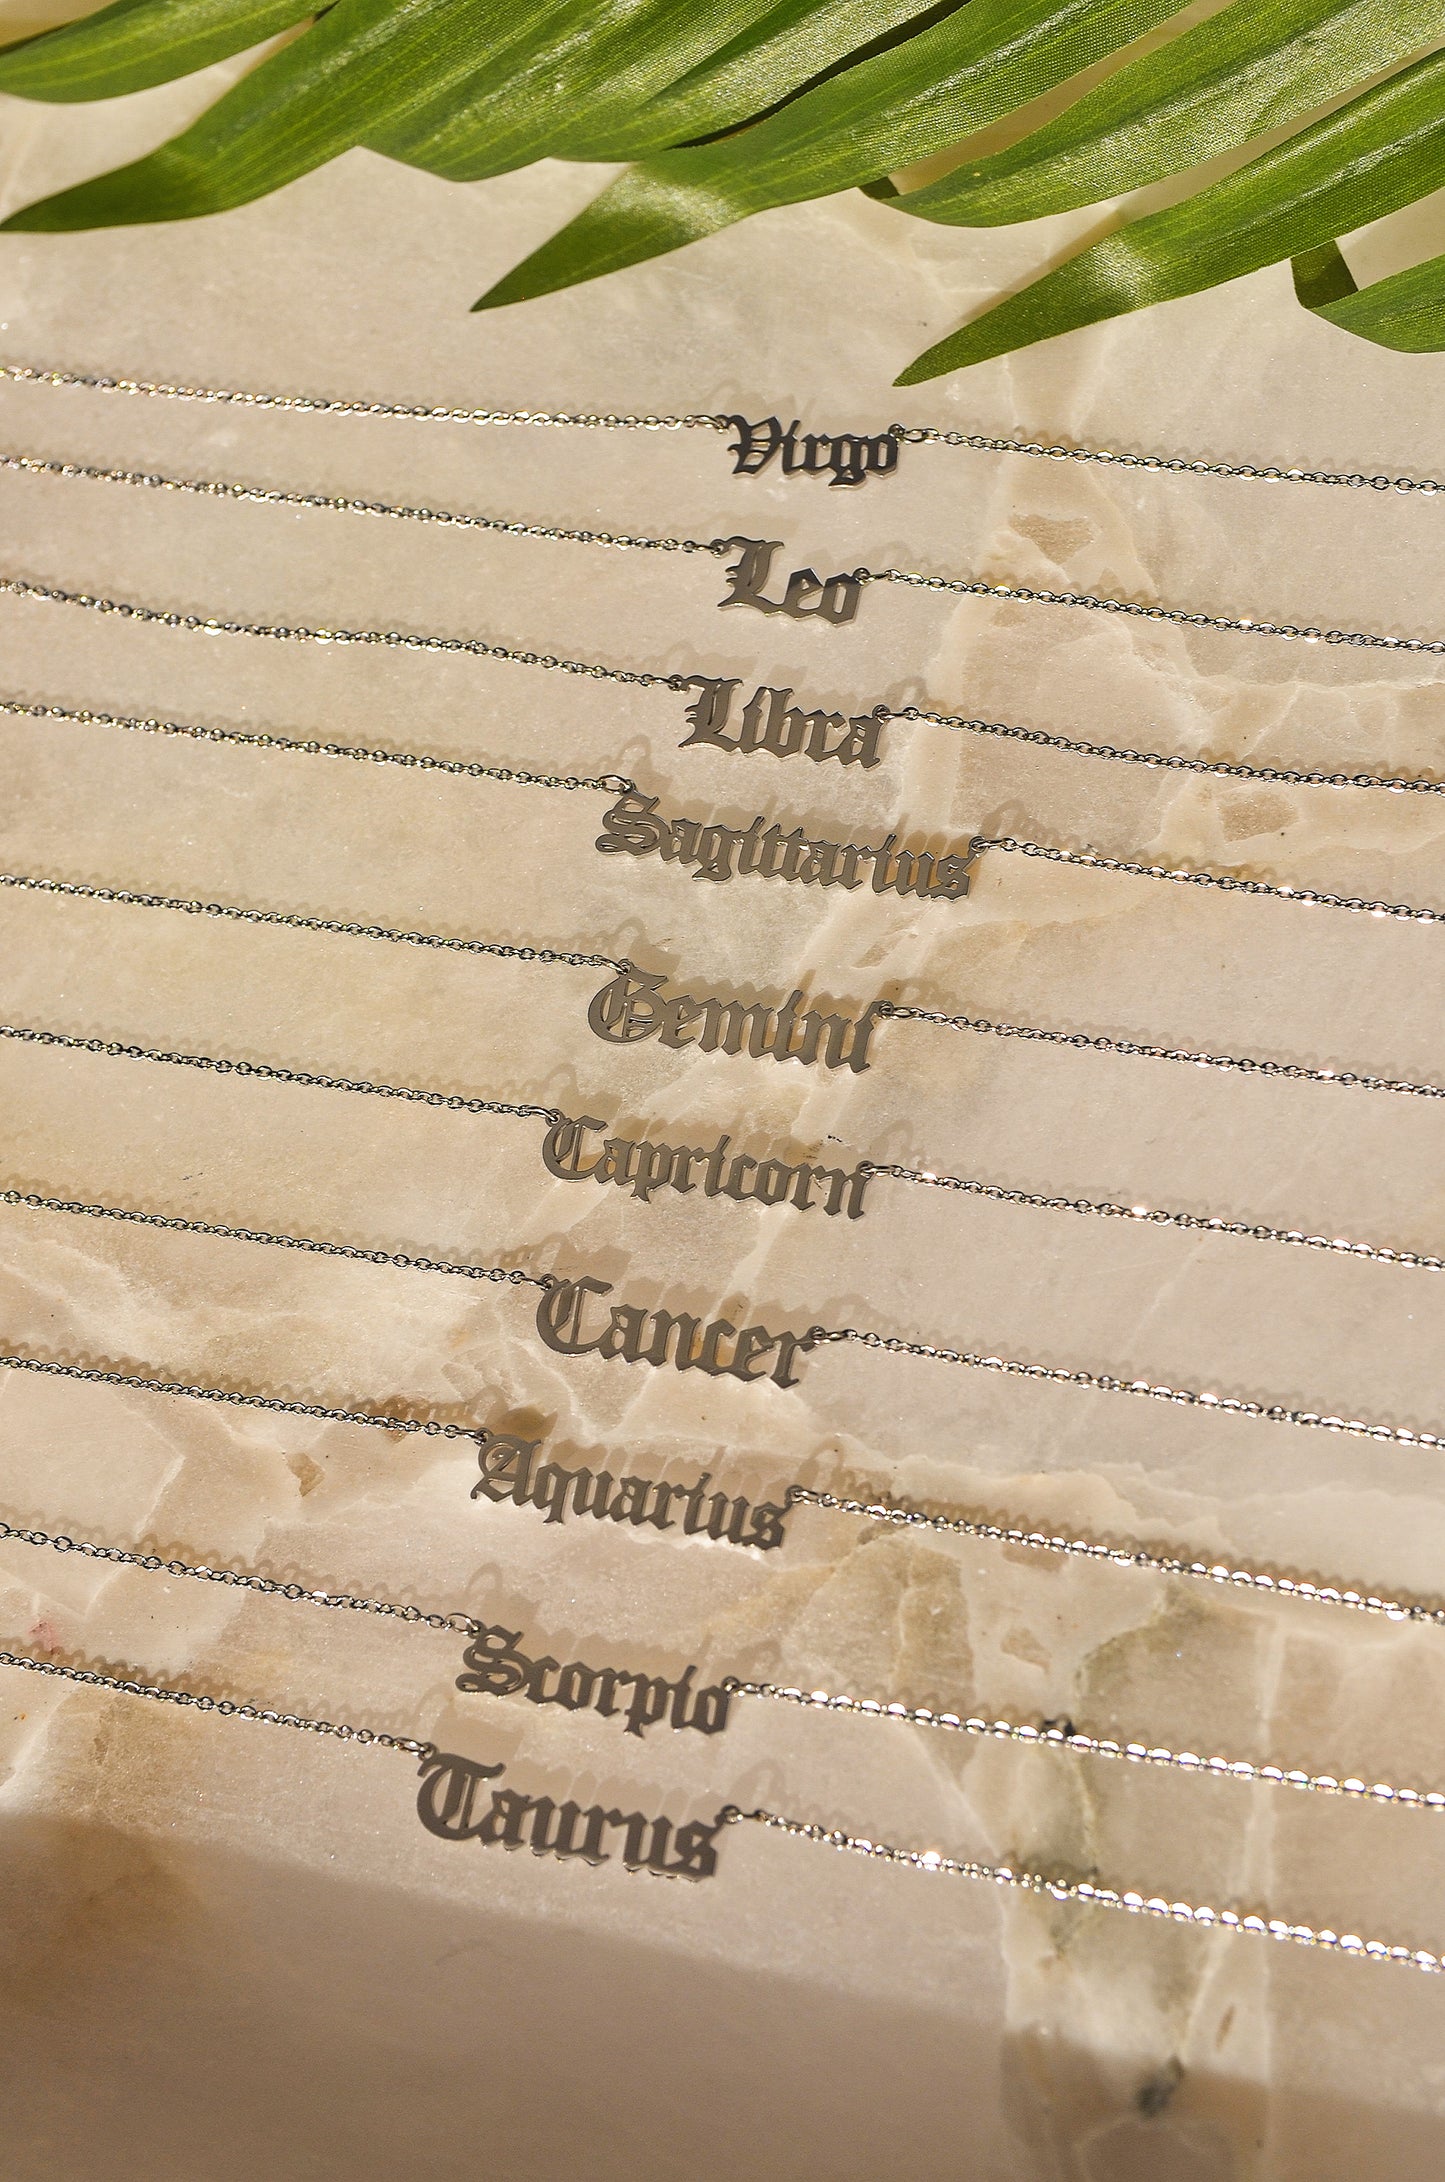 Virgo
Leo
Libra
Sagittarius
Gemini
Capricorn
Cancer
Aquarius
Scorpio
Taurus